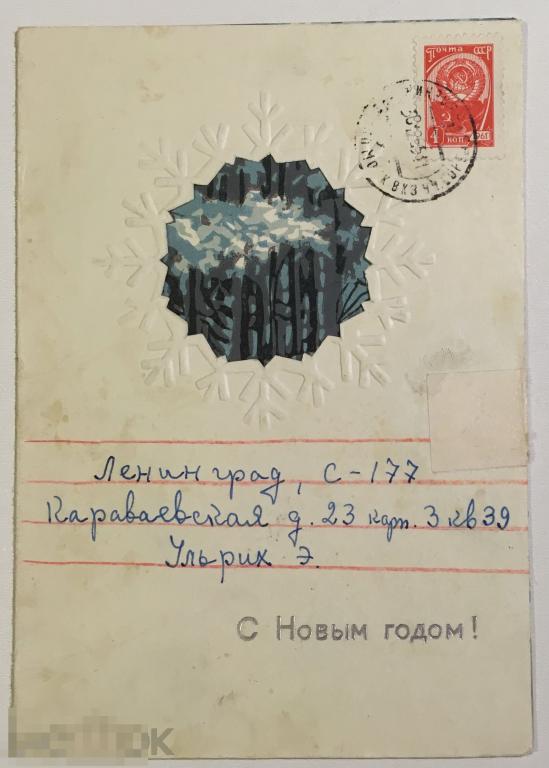 Почта СССР
4 коп. 1961
Ленинград, С-177
Караваевская д. 23 корп. 3 кв 39
Ульрих Э.
С Новым годом!